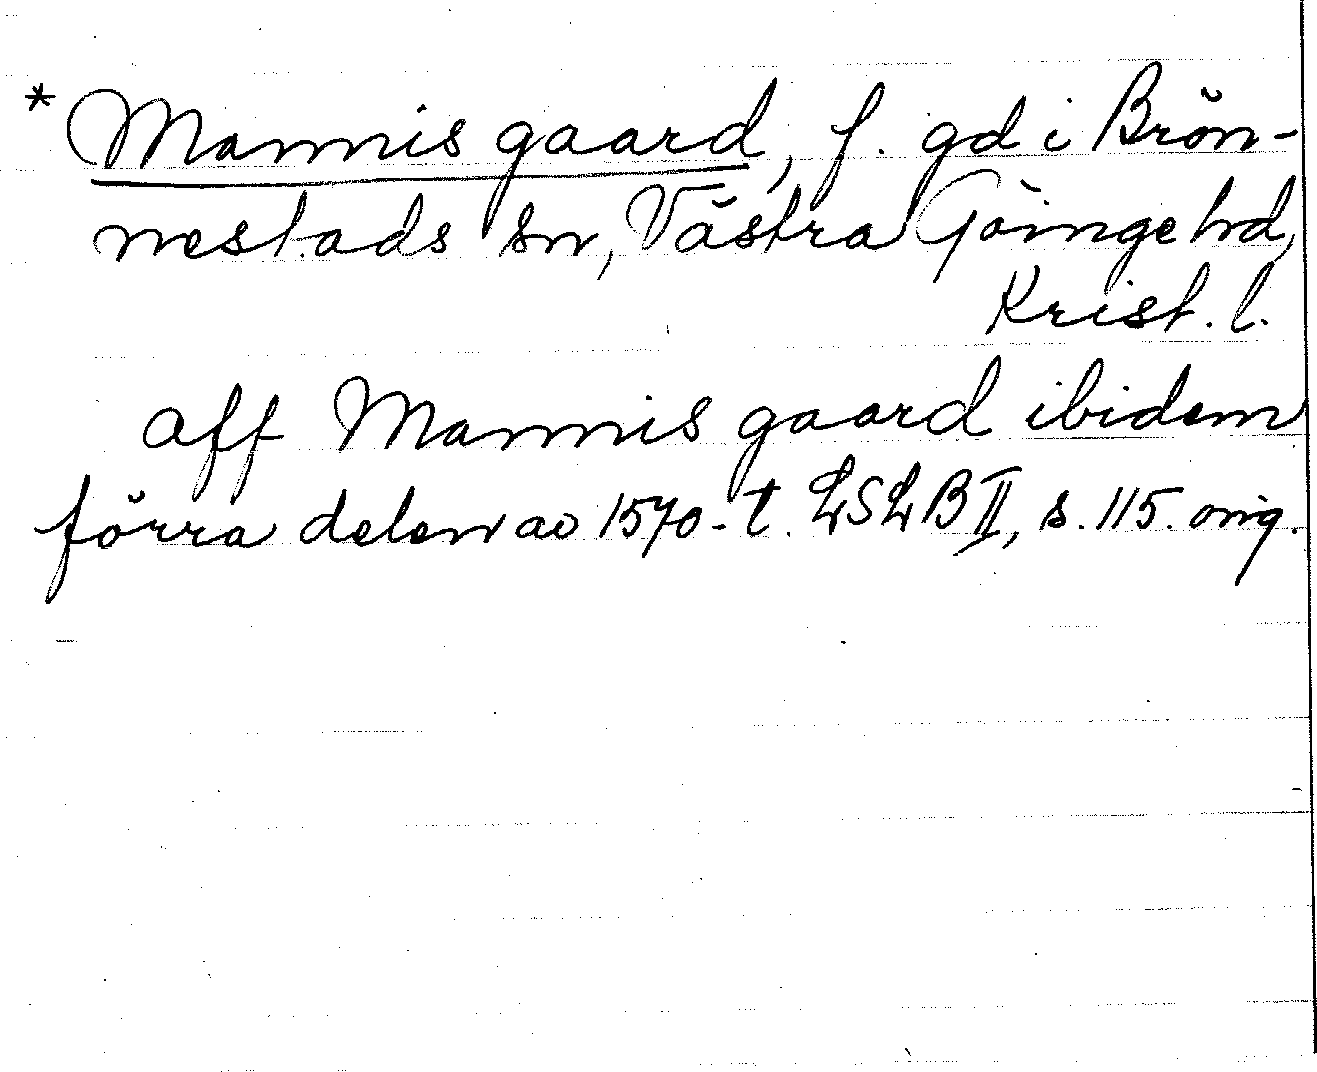 * Mannis gaard, f. gd i Brön-
nestads sn, Västra Göinge hd,
Krist. l.
aff Mannis gaard ibidem
förra delen av 1570-t. LSLB II, s. 115. orig.